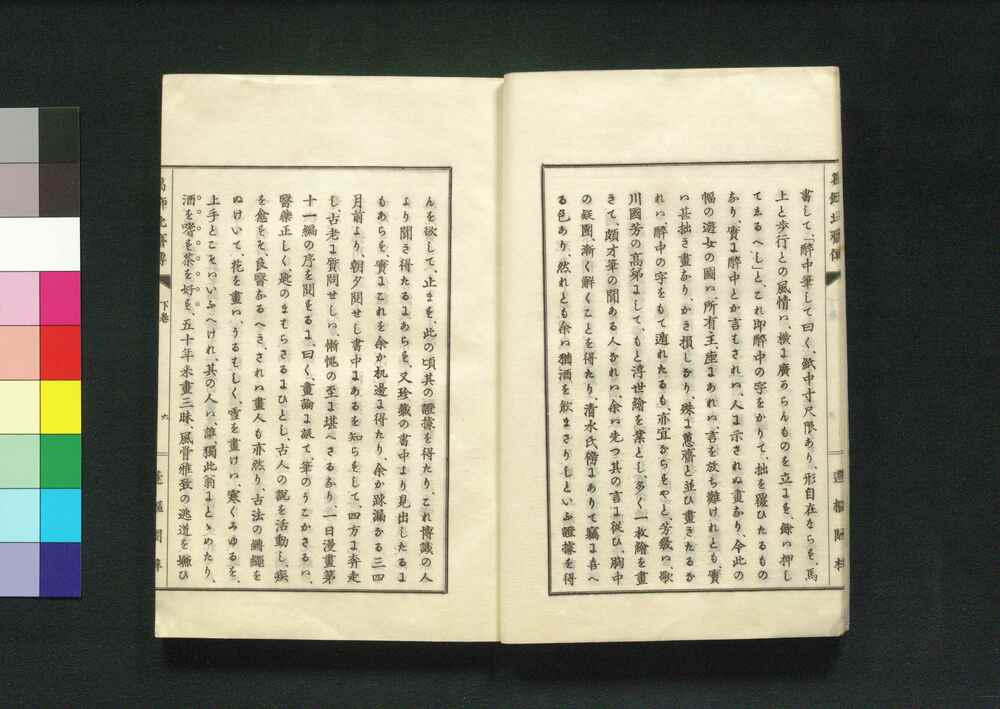 書して、「醉中筆して曰く、紙中寸尺限あり、形自在ならを、馬
上と歩行との風情ハ、横ま廣からんものを立まを、餘ハ押し
てまるへし」と、これ即醉中の字をかりて、拙を覆ひたるもの
なり、實ま醉中とか言むされハ、人ま示されぬ畫なり、今此の
幅の遊女の圖ハ、所有主、座まあれハ、言を放ち難けれとも、實
ハ甚拙き畫なり、かき損しなり、殊ま蕙齋と並ひ畫きたるか
れハ、醉中の字をもて遁れたるも、亦宜からをやと、芳幾ハ、歌
川國芳の高弟まして、もと浮世繪を業とし、多く一枚繪を畫
きて、頗才筆の聞ある人なれハ、余ハ先つ其の言ま從ひ、胸中
の疑團、漸く解くことを得たり、清水氏傍まありて竊ま喜へ
る色あり、然れとも余ハ猶酒を飲まさりしといふ證據を得
んを欲して、止まを、此の頃其の證據を得たり、これ博識の人
より聞き得たるまあらを、又珍藏の書中より見出したるま
もあらを、實まこれを余か机邊ま得たり、余か疎漏なる三四
月前より、朝夕閲せし書中まあるを知らをして、四方ま奔走
し、古老ま質問せしハ、慚愧の至ま堪へさるなり、一日漫畫第
十一編の序を閲をるま、曰く、「畫論ま泥て筆のうこかさるハ、
醫藥正しく、匙のまもらさるまひとし、古人の說を活動し、疾
を愈をを、良醫なるへき、されハ畫人も亦然り、古法の縛繩を
ぬけいて、花を畫ハ、うるもしく、雪を畫けハ、寒くみゆるを、
上手とこそいふへけれ、其の人ハ、誰、獨此翁まとゝめたり、
酒を嗜を茶を好を、五十年来畫三昧、風骨雅致の逃道を撫ひ
下卷
六